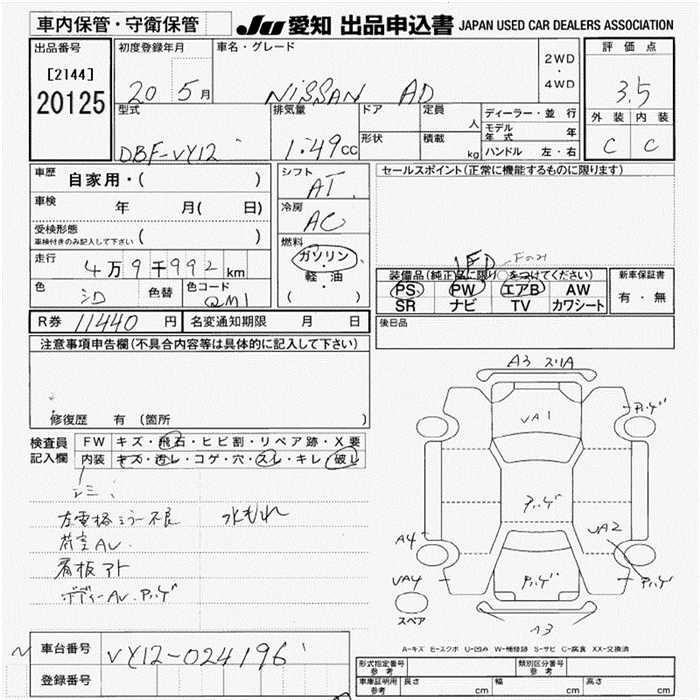 車内保管・守衛保管
JU 愛知 出品申込書 JAPAN USED CAR DEALERS ASSOCIATION
出品番号
[2144]
20125
初度登録年月
20 5月
車名・グレード
NISSAN AD
2WD
・
4WD
評価点
3.5
外装 内装
C C
型式
DBF-VY12
排気量
1.49cc
ドア
形状
定員
人
積載
kg
ディーラー・並行
モデル年式 年
ハンドル 左・右
車歴 自家用・( )
車検 年 月( 日)
受検形態
車検付きのみ記入して下さい ( )
走行 4万9千992km
色 シロ 色替 色コード QM1
シフト
AT
冷房
AC
燃料
ガソリン
・
軽・油
( )
セールスポイント(正常に機能するものに限ります)
装備品(純正品に限り○をつけてください)
PS PW エアB AW
SR ナビ TV カワシート
新車保証書
有・無
R券 11440 円 名変通知期限 月 日
後日品
注意事項申告欄(不具合内容等は具体的に記入して下さい)
修復歴 有 (箇所 )
検査員
記入欄
FW キズ・飛石・ヒビ割・リペア跡・X要
内装 キズ・汚レ・コゲ・穴・スレ・キレ・破レ
シミ
左電格ミラー不良 水もれ
荷室AU
看板アト
ボディーAU.アハゲ
A3 スリA
UA1
アハゲ
アハゲ
UA2
A4
UA4
アハゲ
アハゲ
スペア
A3
A-キズ E-エクボ U-凹み W-補修跡 S-サビ C-腐食 XX-交換済
車台番号 VY12-024196
登録番号
形式指定番号
参考
類別区分番号
参考
車庫証明用
参考
長さ cm 幅 cm 高さ cm